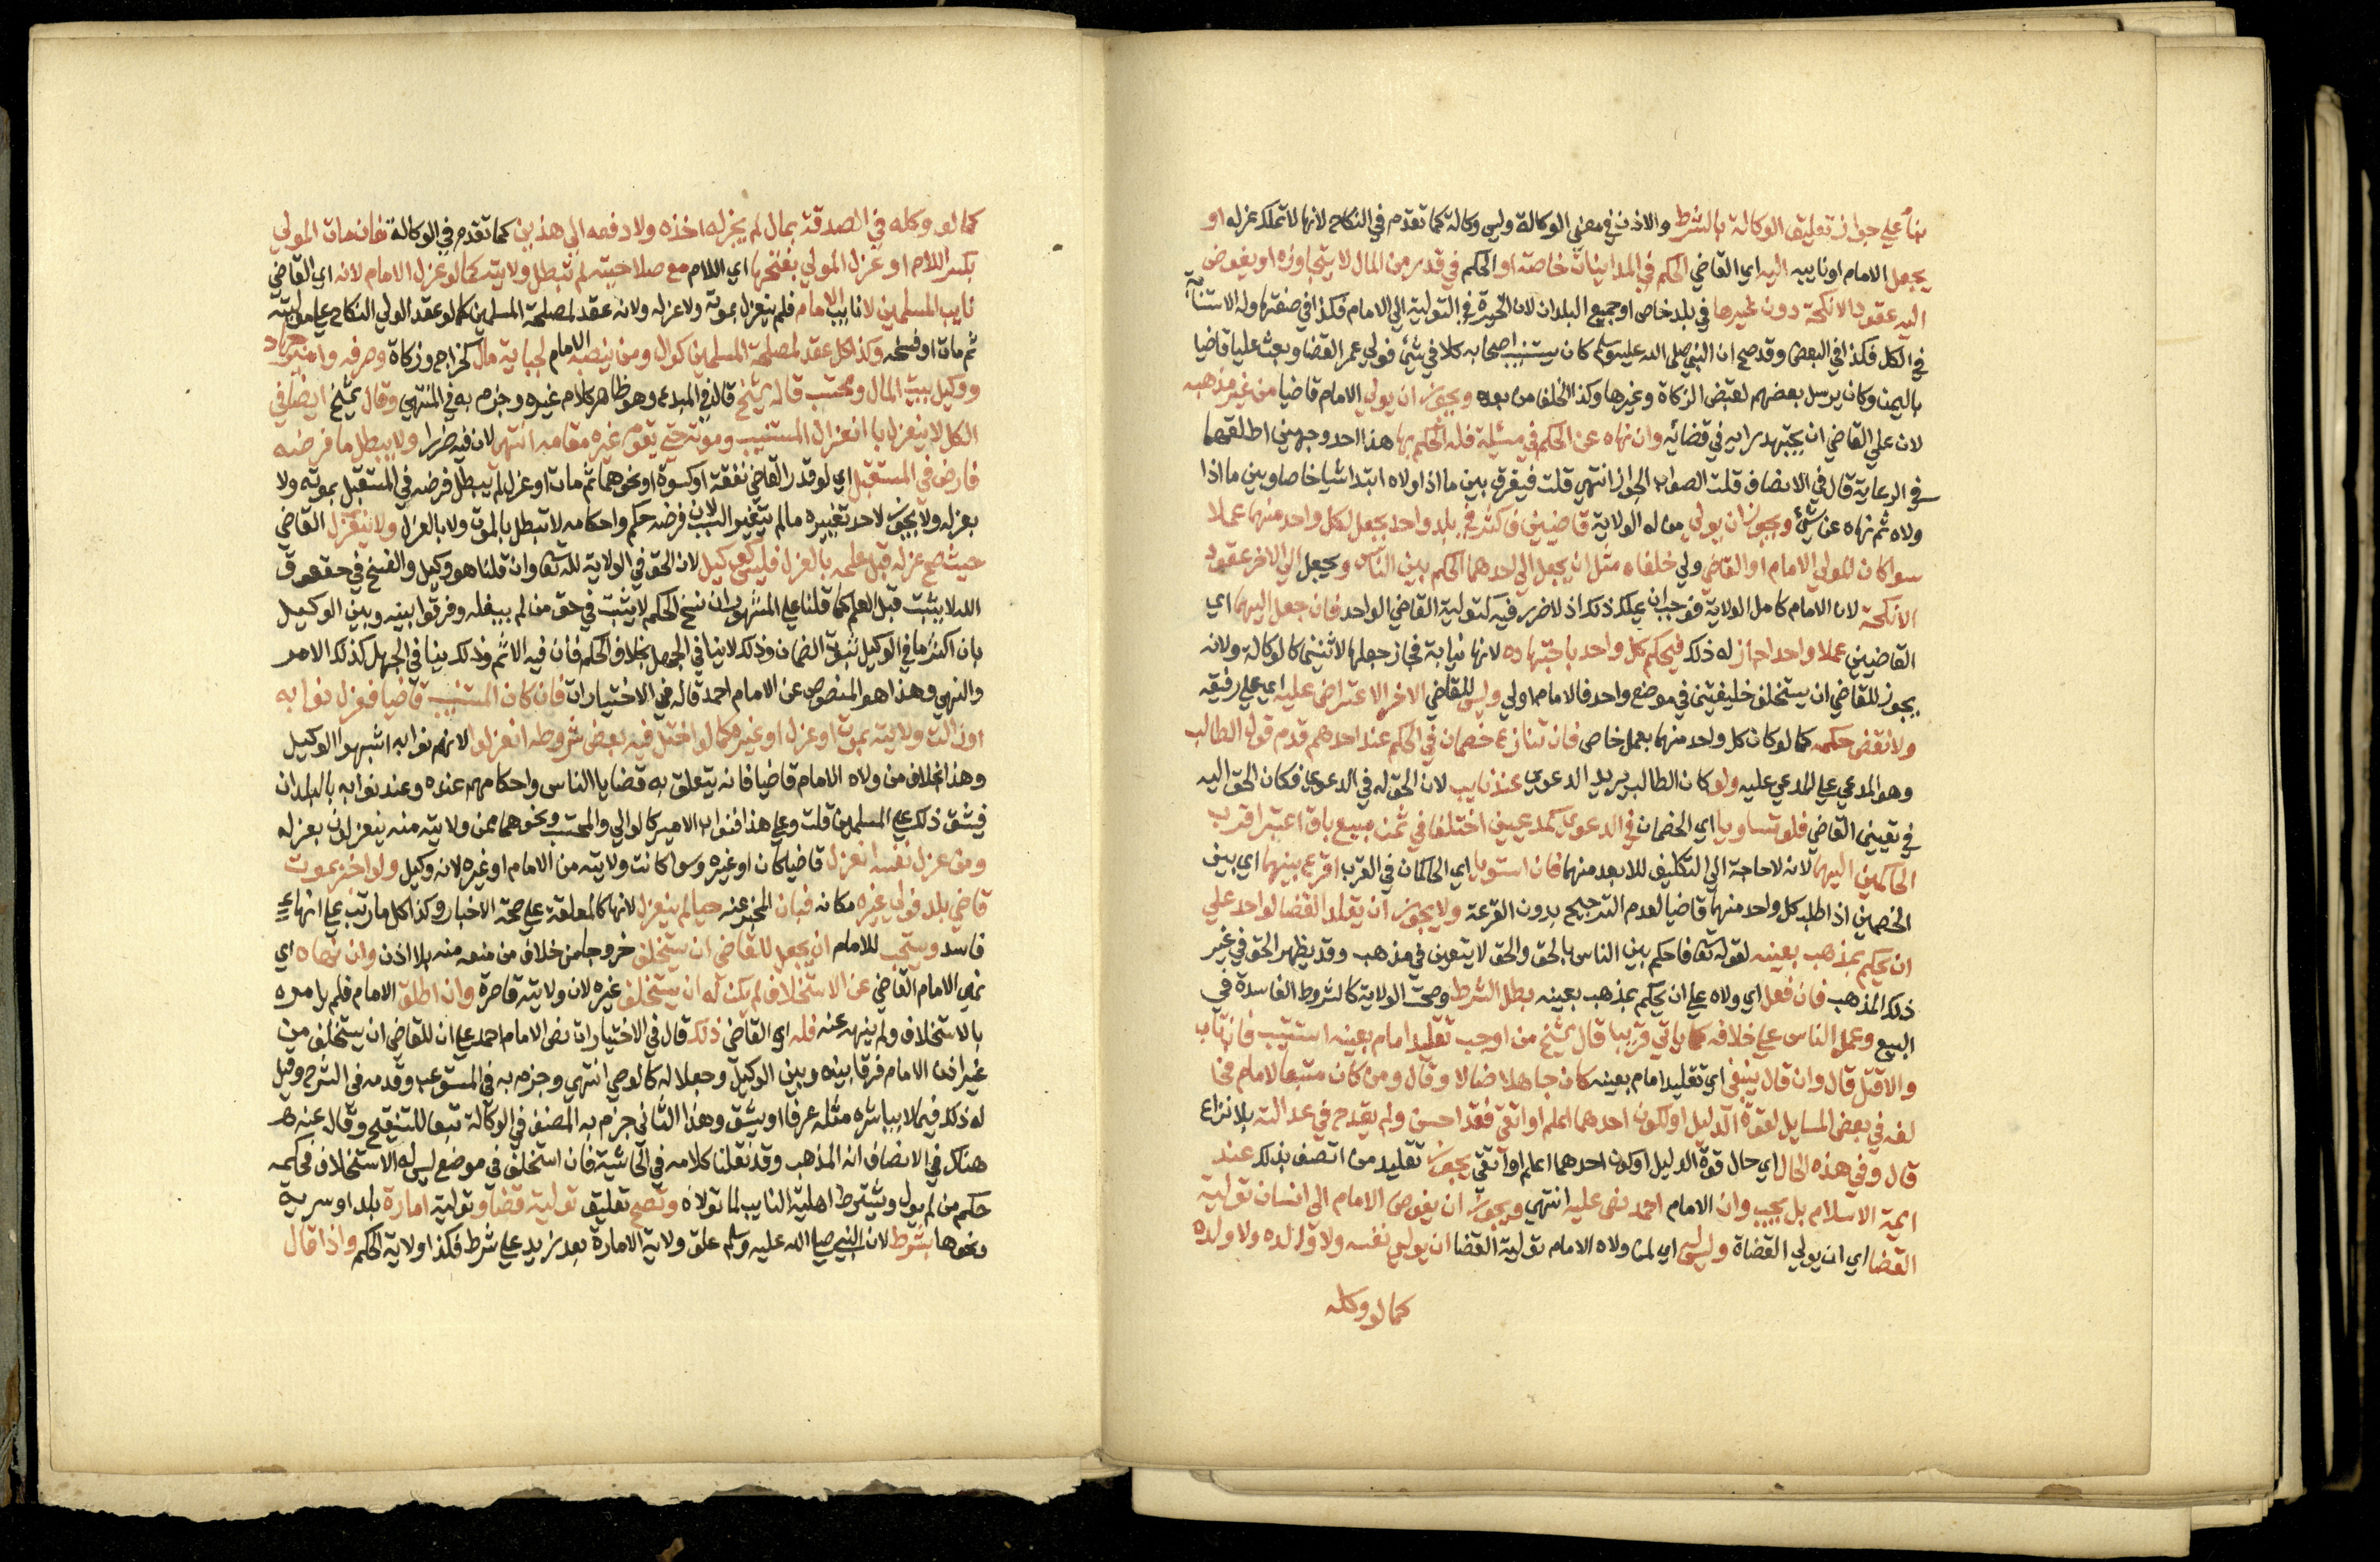 بناء علي جواز تعليق الوكالة بالشرط والاذن في معني الوكالة وليس وكالة كما تقدم في النكاح لانها لا تملك عزله او
يجعل الامام او نايبه اليه اي القاضي الحكم في المداينات خاصة او الحكم في قدر من المال لا يتجاوزه او يفوض
اليه عقود الانكحة دون غيرها في بلد خاص او جميع البلدان لان الخيرة في التولية الي الامام فكذا في صفتها وله الاستنابة
في الكل فكذا في البعض وقد صح ان النبي صلي الله عليه وسلم كان يستنيب اصحابه كلا في شئ فولي عمر القضا وبعث عليا قاضيا
باليمن وكان يرسل بعضهم لقبض الزكاة وغيرها وكذا الخلفا من بعده ويجوز ان يولي الامام قاضيا من غير مذهبه
لان علي القاضي ان يجتهد برايه في قضائه وان نهاه عن الحكم في مسئلة فله الحكم بها هذا احد وجهين اطلقهما
في الرعاية قال في الانصاف قلت الصواب الجواز انتهي قلت فيفرق بين ما اذا ولاه ابتدا شيا خاصا وبين ما اذا
ولاه ثم نهاه عن شئ ويجوز ان يولي من له الولاية قاضيين فاكثر في بلد واحد يجعل لكل واحد منهما عملا
سوا كان المولي الامام او القاضي ولي خلفاه مثل ان يجعل الي احدهما الحكم بين الناس ويجعل الي الاخر عقود
الانكحة لان الامام كامل الولاية فوجب ان يملك ذلك اذ لا ضرر فيه كتولية القاضي الواحد فان جعل اليهما اي
القاضيين عملا واحدا جاز له ذلك فيحكم كل واحد باجتهاده لانها نيابة فجاز جعلها لاثنين كالوكالة ولانه
يجوز للقاضي ان يستخلف خليفتين في موضع واحد فالامام اولي وليس للقاضي الاخر الاعتراض عليه اي علي رفيقه
ولا نقض حكمه كما لو كان كل واحد منهما بعمل خاص فان تنازع خصمان في الحكم عند احدهم قدم قول الطالب
وهو المدعي علي المدعي عليه ولو كان الطالب يريد الدعوي عند نايب لان الحق له في الدعوي فكان الحق اليه
في تعيين القاضي فلو تساويا اي الخصمان في الدعوي كمدعيين اختلفا في ثمن مبيع باق اعتبر اقرب
الحاكمين اليهما لانه لا حاجة الي التكليف للابعد منهما فان استويا اي الحاكمان في القرب اقرع بينهما اي بين
الخصمين اذا طلب كل واحد منهما قاضيا لعدم الترجيح بدون القرعة ولا يجوز ان يقلد القضا لواحد علي
ان يحكم بمذهب بعينه لقوله تعا فاحكم بين الناس بالحق والحق لا يتعين في مذهب وقد يظهر الحق في غير
ذلك المذهب فان فعل اي ولاه علي ان يحكم بمذهب بعينه بطل الشرط وصحت الولاية كالشروط الفاسدة في
البيع وعمل الناس علي خلافه كما ياتي قريبا قال الشيخ من اوجب تقليد امام بعينه استتيب فان تاب
والا قتل قال وان قال ينبغي اي تقليد امام بعينه كان جاهلا ضالا وقال ومن كان متبعا لامام فخا
لفه في بعض المسايل لقوة الدليل او لكون احدهما اعلم او اتقي فقد احسن ولم يقدح في عدالته بلا نزاع
قال وفي هذه الحال اي حال قوة الدليل او كون احدهما اعلم او اتقي يجوز تقليد من اتصف بذلك عند
ايمة الاسلام بل يجب وان الامام احمد نص عليه انتهي ويجوز ان يفوض الامام الي انسان تولية
القضا اي ان يولي القضاة وليس اي لمن ولاه الامام تولية القضا ان يولي نفسه ولا والده ولا ولده
كما لو وكله
كما لو وكله في الصدقة بمال لم يجز له اخذه ولا دفعه الي هذين كما تقدم في الوكالة فان مات المولي
بكسر اللام او عزل المولي بفتحها اي اللام مع صلاحيته لم تبطل ولايته كما لو عزل الامام لانه اي القاضي
نايب المسلمين لا نايب الامام فلم ينعزل بموته ولا عزله ولانه عقد لمصلحة المسلمين كما لو عقد الولي النكاح علي موليته
ثم مات او فسخه وكذا كل عقد لمصلحة المسلمين كوال ومن ينصبه الامام لجباية مال كخراج وزكاة وصرفه وامير جهاد
ووكيل بيت المال ومحتسب قاله الشيخ قال في المبدع وهو ظاهر كلام غيره وجزم به في المنتهي وقال الشيخ ايضا في
الكل لا ينعزل بانعزال المستنيب وموته حتي يقوم غيره مقامه انتهي لان فيه ضررا ولا يبطل ما فرضه
فارض في المستقبل اي لو قدر القاضي نفقة او كسوة او نحوهما ثم مات او عزل لم يبطل فرضه في المستقبل بموته ولا
بعزله ولا يجوز لاحد تغييره مالم يتغير السبب لان فرضه حكم واحكامه لا تبطل بالموت ولا بالعزل ولا ينعزل القاضي
حيث صح عزله قبل علمه بالعزل فليس كوكيل لان الحق في الولاية لله تعا وان قلنا هو وكيل والفسخ في حقوق
الله لا يثبت قبل العلم كما قلنا علي المشهور ان نسخ الحكم لا يثبت في حق من لم يبلغه وفرقوا بينه وبين الوكيل
بان اكثر ما في الوكيل ثبوت الضمان وذلك لا ينافي الجهل بخلاف الحكم فان فيه الاثم وذلك ينافي الجهل كذلك الامر
والنهي وهذا هو المنصوص عن الامام احمد قاله في الاختيارات فان كان المستنيب قاضيا فعزل نوابه
او زالت ولايته بموت او عزل او غيره كما لو اختل فيه بعض شروطه انعزلوا لانهم نوابه اشبهوا الوكيل
وهذا بخلاف من ولاه الامام قاضيا فانه يتعلق به قضايا الناس واحكامهم عنده وعند نوابه بالبلدان
فيشق ذلك علي المسلمين قلت وعلي هذا فنواب الامير كالوالي والمحتسب ونحوهما ممن ولايته منه ينعزلون بعزله
ومن عزل نفسه انعزل قاضيا كان او غيره وسوا كانت ولايته من الامام او غيره لانه وكيل ولو اخبر بموت
قاضي بلد فولي غيره مكانه فبان المخبر عنه حيا لم ينعزل لانها كالمعلقة علي صحة الاخبار وكذا كل ما رتب علي انهاء
فاسد ويستحب للامام ان يجعل للقاضي ان يستخلف خروجا من خلاف من منعه منه بلا اذن وان نهاه اي
نهي الامام القاضي عن الاستخلاف لم يكن له ان يستخلف غيره لان ولايته قاصرة وان اطلق الامام فلم يامره
بالاستخلاف ولم ينهه عنه فله اي القاضي ذلك قال في الاختيارات نص الامام احمد علي ان للقاضي ان يستخلف من
غير اذن الامام فرقا بينه وبين الوكيل وجعلا له كالوصي انتهي وجزم به في المستوعب وقدمه في الشرح وقيل
له ذلك فيما لا يباشره مثله عرفا او يشق وهذا الثاني جزم به المصنف في الوكالة تبعا للتنقيح وقال عنه
هناك في الانصاف انه المذهب وقد نقلنا كلامه في الحاشية فان استخلف في موضع ليس له الاستخلاف فحكمه
حكم من لم يول ويشترط اهلية النايب لما تولاه وتصح تعليق تولية قضا وتولية امارة بلد او سرية
ونحوها بشرط لان النبي صلي الله عليه وسلم علق ولاية الامارة بعد زيد علي شرط فكذا ولاية الحكم واذا قال